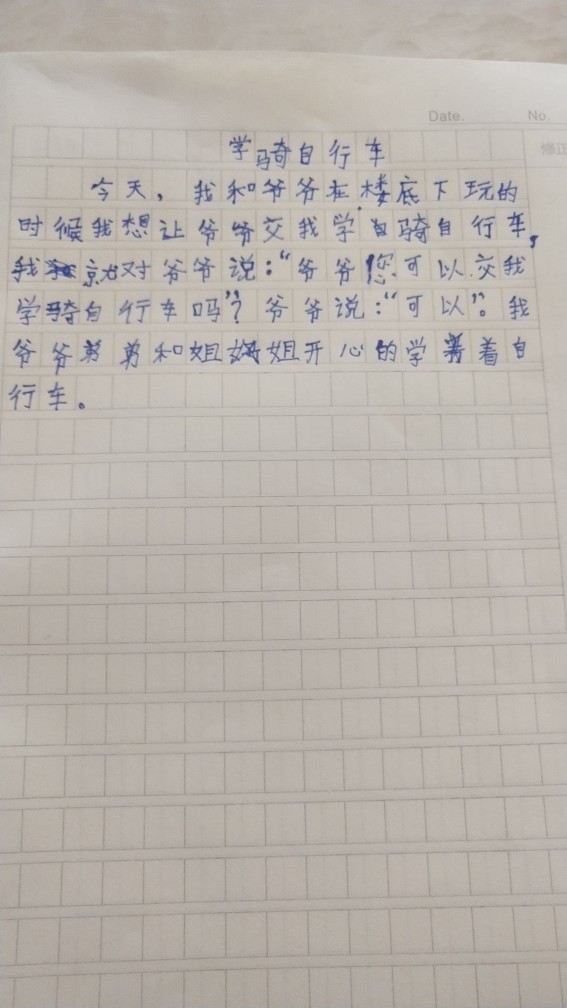 Date.
No.
修正
学骑自行车
今天，我和爷爷在楼底下玩的
时候我想让爷爷交我学骑自行车，
我就对爷爷说：“爷爷您可以交我
学骑自行车吗”？爷爷说：“可以”。我
爷爷弟弟和姐姐开心的学着自
行车。